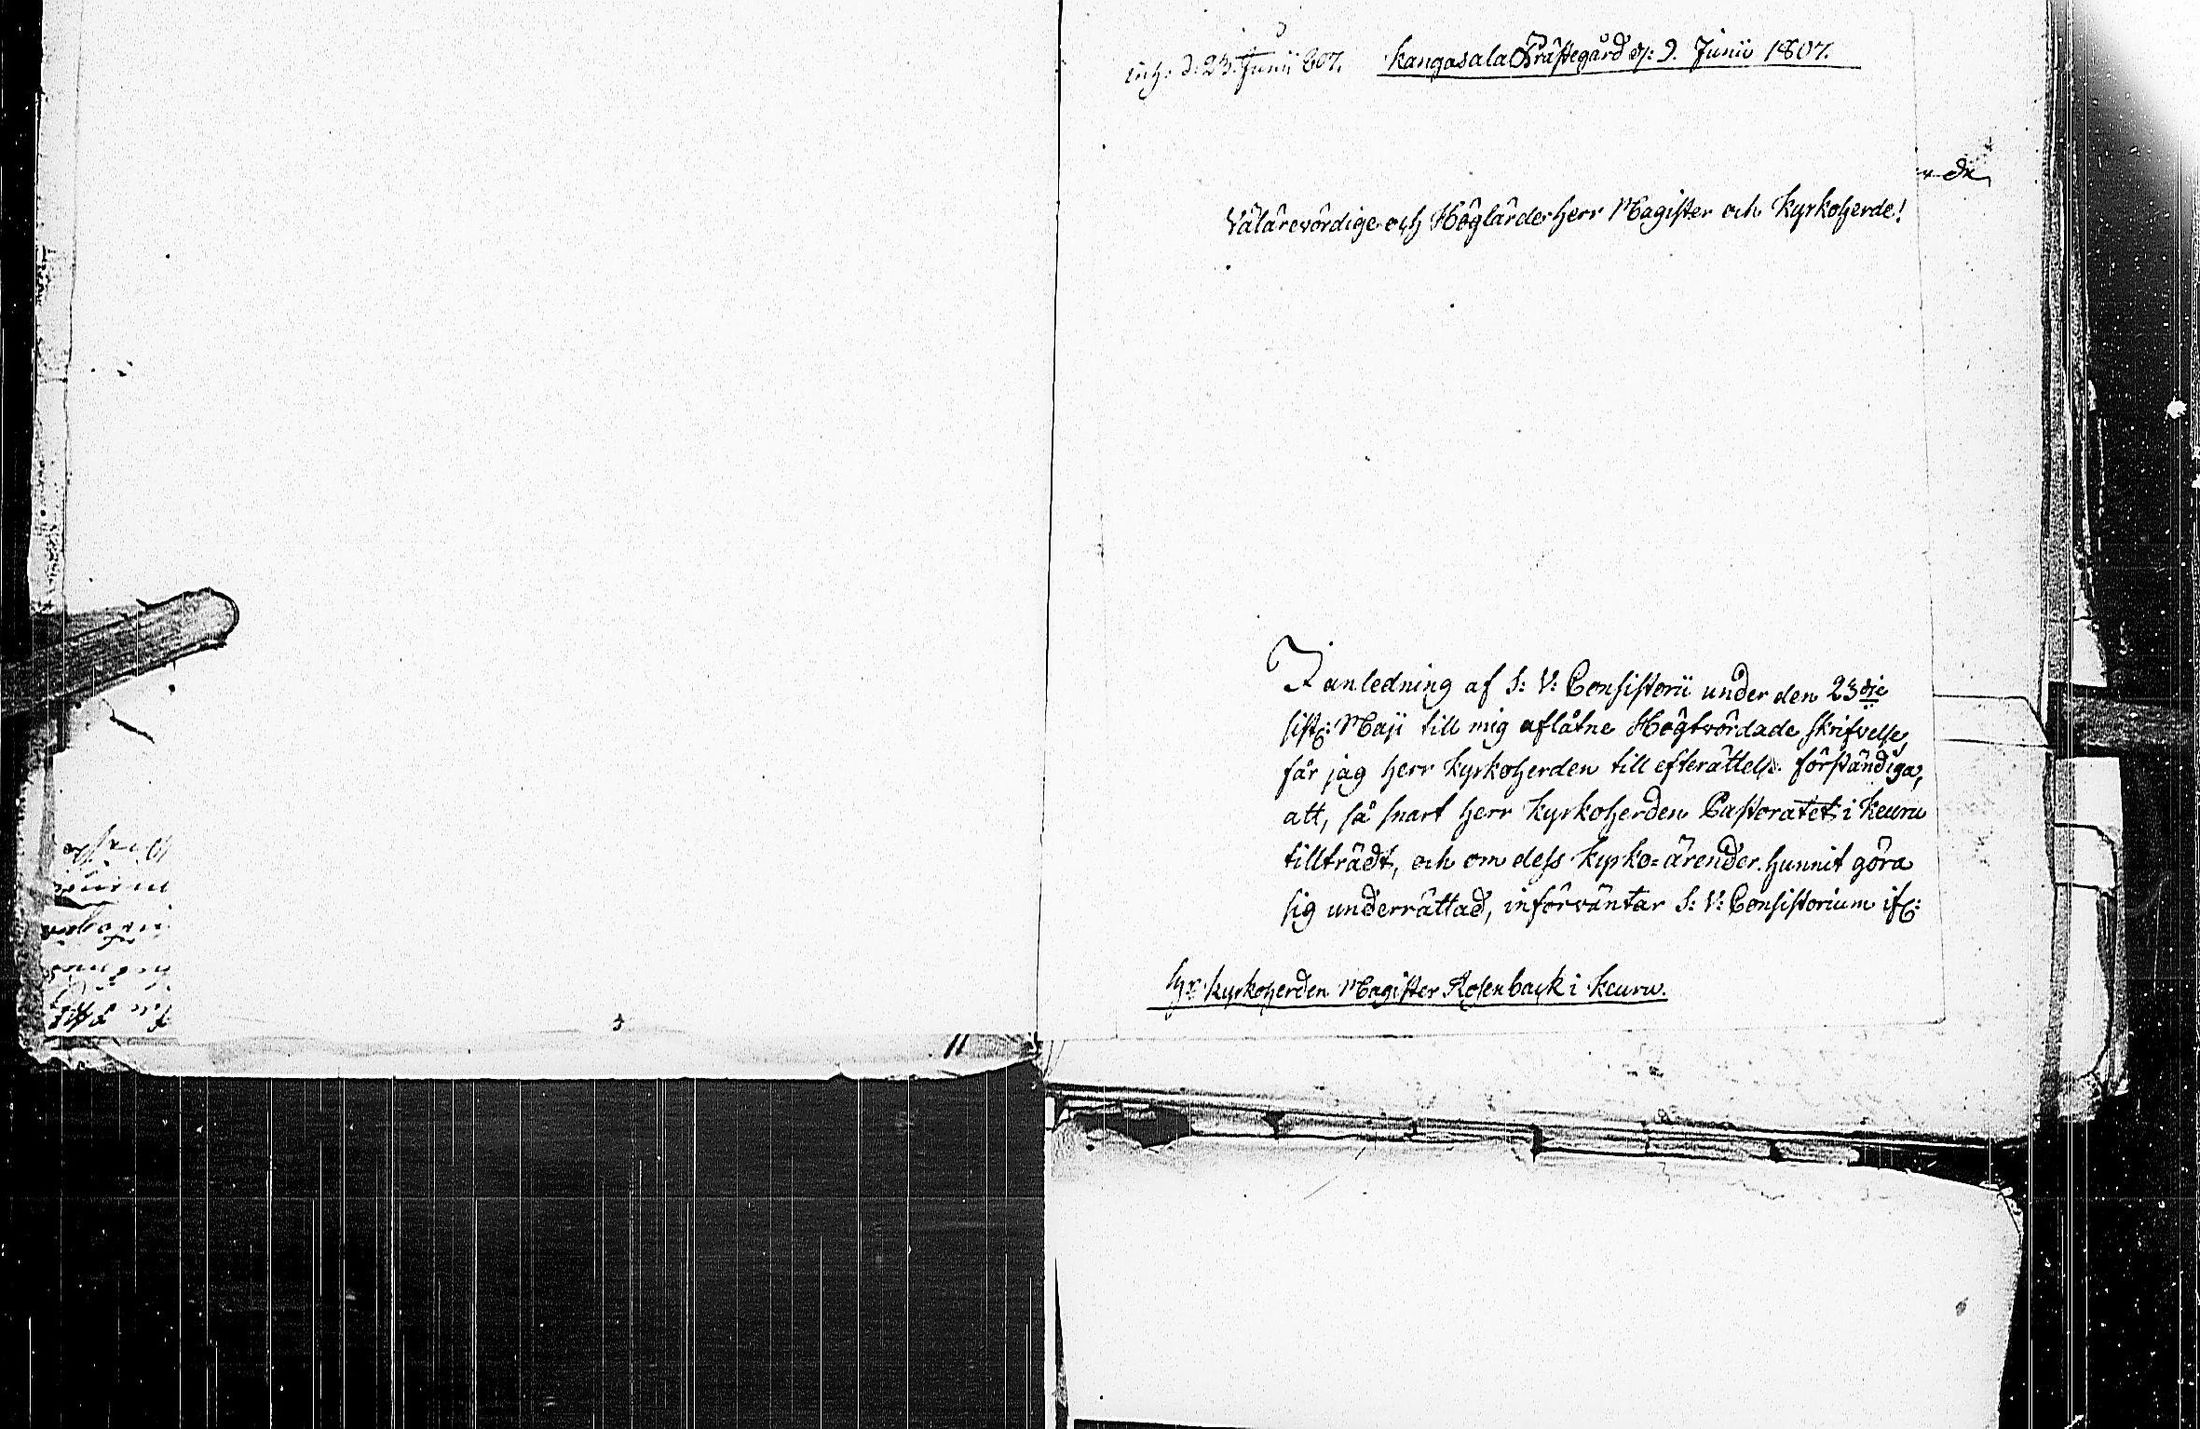 ink. d. 23. Junii 807. Kangasala Prästegård d: 9. Junii 1807.
Välärevördige och Höglärde herr Magister och Kyrkoherde!
I anledning af S: V: Consistorii under den 23dje
sistl: Maji till mig aflåtne Högtvördade skrifvelse,
får jag herr Kyrkoherden till efterättelse förständiga,
att, så snart herr Kyrkoherden Pastoratet i Keuru
tillträdt, och om dess Kyrko=ärender hunnit göra
sig underrättad, införväntar S: V: Consistorium
Hr Kyrkoherden Magister Rosenback i Keuru.